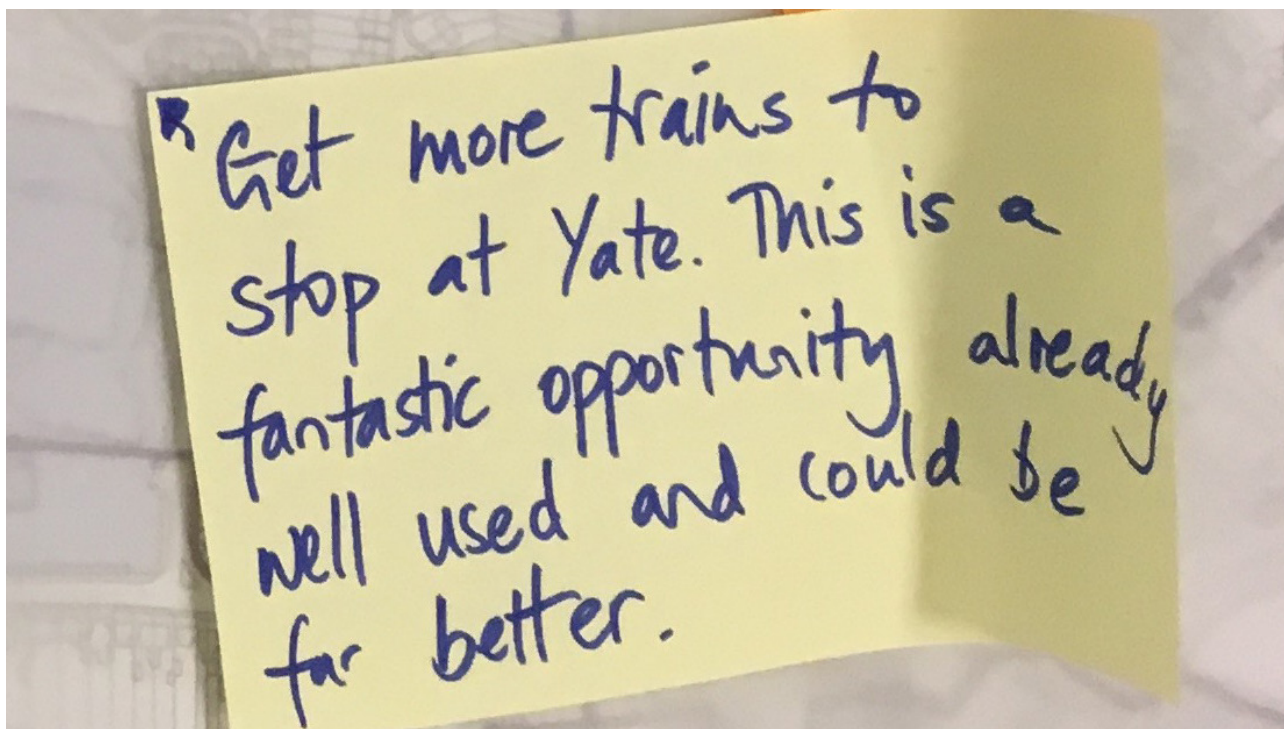 Get more trains to
stop at Yate. This is a
fantastic opportunity already
well used and could be
far better.